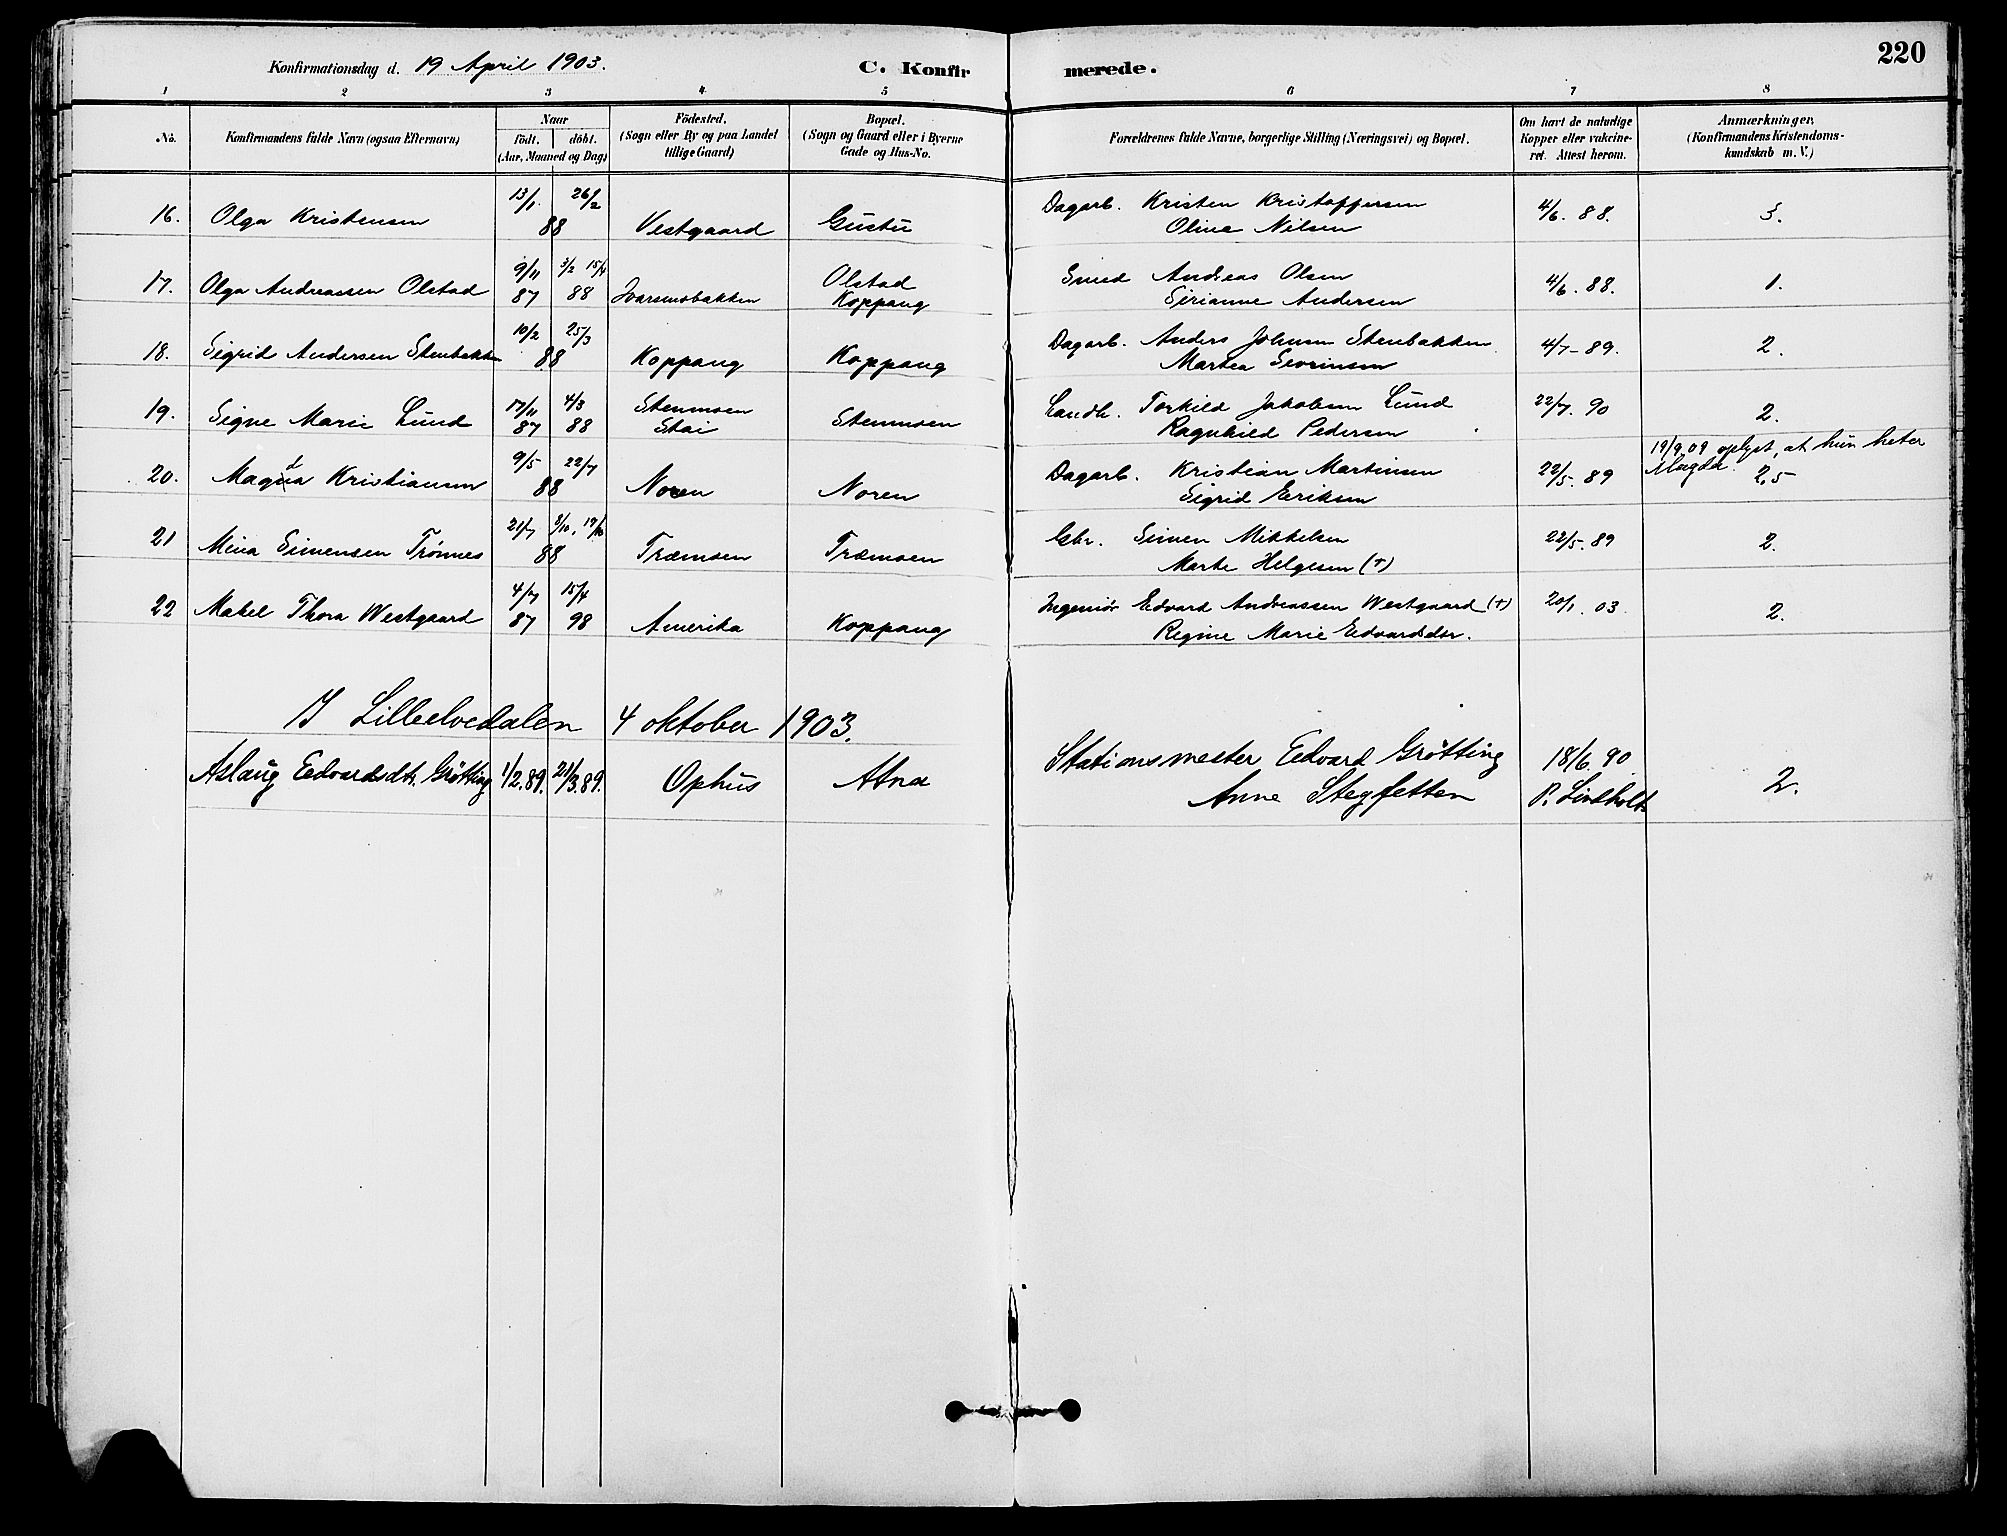 220
Konfirmationsdag d. 19 April 1903. C. Konfirmerede.
1 2 3 4 5 6 7 8
No. Konfirmandens fulde Navn (ogsaa Efternavn) Naar födt. döbt. (Aar, Maaned og Dag) Födested. (Sogn eller By og paa Landet tillige Gaard) Bopæl. (Sogn og Gaard eller i Byerne Gade og Hus-No. Forældrenes fulde Navne, borgerlige Stilling (Næringsvei) og Bopæl. Om havt de naturlige Kopper eller vakcineret. Attest herom. Anmærkninger. (Konfirmandens Kristendomskundskab m. V.)
16. Olga Kristensen 13/1. 26/2 88 Vestgaard Gustu Dagarb. Kristen Kristoffersen 4/6. 88. 3.
Oline Nilsen
17. Olga Andreassen Olstad 9/11 87 3/2 15/4 88 Ivarsmobakken Olstad Koppang Smed Andreas Olsen 4/6. 88. 1.
Sirianne Andersen
18. Sigrid Andersen Stenbakken 10/2 25/3 88 Koppang Koppang Dagarb. Anders Johnsen Stenbakken 4/7-89. 2.
Martea Sevrinsen
19. Signe Marie Lund 17/11 87 4/3 88 Stenmoen Stai Stenmoen Landh. Torkild Jakobsen Lund 22/7. 90 2.
Ragnhild Pedersen
19/9.09 oplyst, at hun heter Magda.
20. Magna d Kristiansen 9/5 22/7 88 Noren Noren Dagarb. Kristian Martinsen 22/5. 89 2,5
Sigrid Eriksen
21 Mina Simensen Trönnes 21/7 3/10, 17/10 88 Træmoen Træmoen Gbr. Simen Mikkelsen 22/5.89 2.
Marte Helgesen (+)
22 Mabel Thora Westgaard 4/7 87 15/4 98 Amerika Koppang Ingeniör Edvard Andreassen Westgaard (+) 20/1. 03. 2.
Regine Marie Edvardsdtr.
I Lilleelvedalen 4 oktober 1903.
Aslaug Edvardsdtr. Grøtting 1/2.89. 21/3.89. Ophus Atna Stationsmester Edvard Grøtting 18/6.90 2.
Anne Stegfetten P. Lindholt